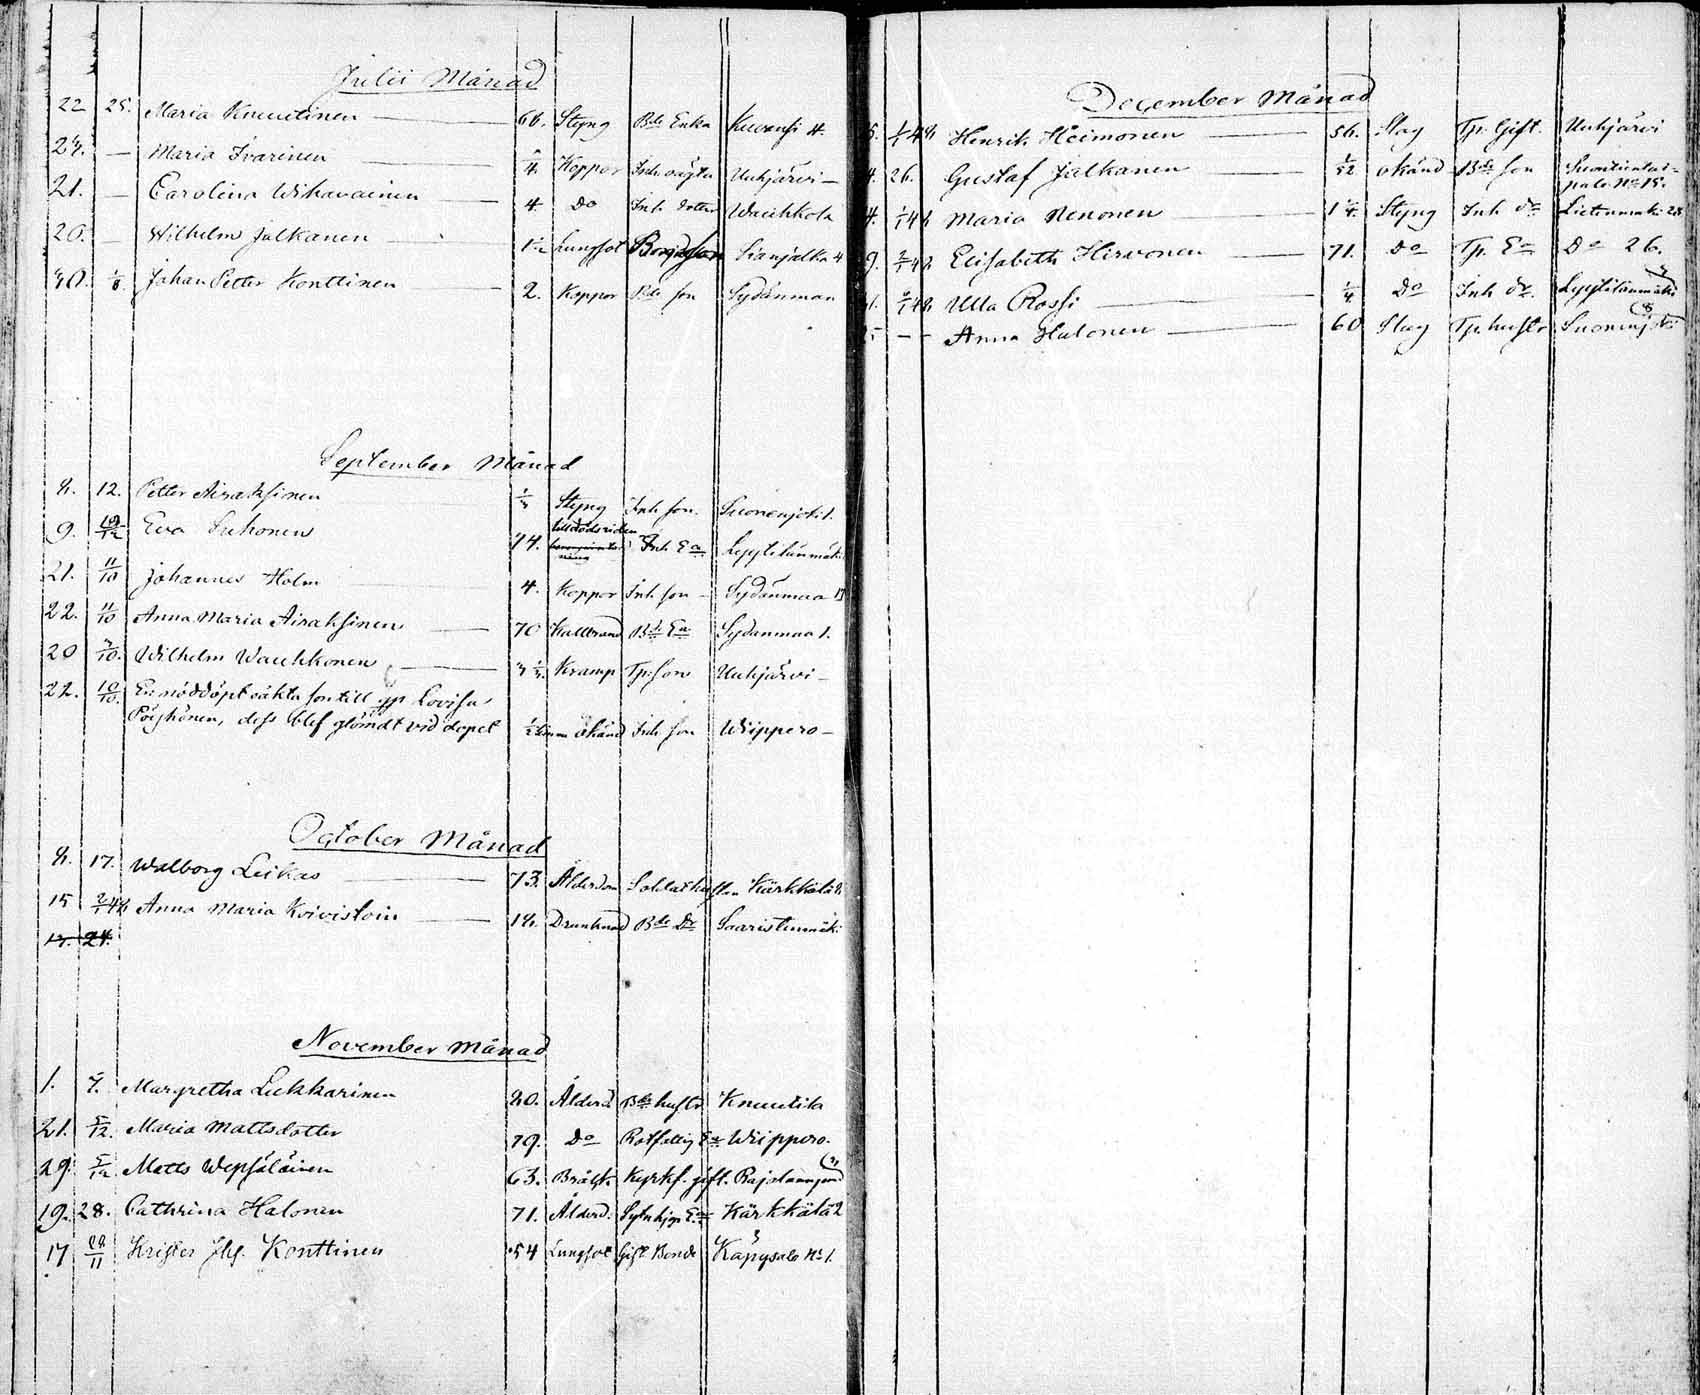 Julii Månad
22 25. Maria Knuutinen 66. Styng Bde Enka Kuvansi 4.
24. — Maria Ivarinen Koppor Inh oägta Uuhjärvi —
21. — Carolina Wihavainen 4. Do Inh dotter Wauhkola
20. — Wilhelm Jalkanen Lungsot Bondeson Sianjalka 4
30. Johan Petter Konttinen 2. Koppor Bde son Sydänmaa
September Månad
8. 12. Petter Airaksinen Styng Inh son. Suonenjoki 1.
9. 19/12 Eva Suhonen 74. Inh Ea Lyytilänmäki
21. 11/10 Johannes Holm 4. Koppor Inh son — Sydänmaa 17
22. 11/10 Anna Maria Airaksinen 70 Kallbrand Bde Ea Sydänmaa 1.
20 Wilhelm Wauhkonen Kramp Tp. son Uuhjärvi —
22. 10/10. En nöddöpt oäkta son till Lovisa
Pöyhönen, dess blef glömdt vid dopet okänd Inh son Wiippero —
October Månad
8. 17. Walborg Leikas 73. Ålderdom Soldathustru Kärkkälä
15 2/1 48 Anna Maria Koivistoin 18. Drunknad Bde Dr Saaristenmäki
17. 24.
November Månad
1. Margretha Lukkarinen 80. Ålderd Bde hustr Knuutila
21. 5/12. Maria Mattsdotter 79. Do Rotfattig Ea Wiippero.
29. 5/12 Matts Wepsäläinen 63. Bråck. Kyrkf. gift.
19. 28. Cathrina Halonen 71. Ålderd. Ea Kärkkälä 2
17 28/11 Krister Joh. Konttinen 54 Lungsot Gift Bonde Käpysalo No 1.
December Månad
5. 1/1 48 Henrik Heimonen 56. Slag Tp. Gift. Uuhjärvi
4. 26. Gustaf Jalkanen 1/52 okänd Bde son
palo No 15.
4. 1/1 48 Maria Nenonen Styng Inh dr Lietenmäki 28
9. 2/1 48 Elisabeth Hirvonen 71. Do Tp. Ea Do 26.
Ulla Rossi 1/4 Do Inh dr. Lyytilänmäki
— — Anna Halonen 60 Slag Tp. hustr Suonenjoki 8